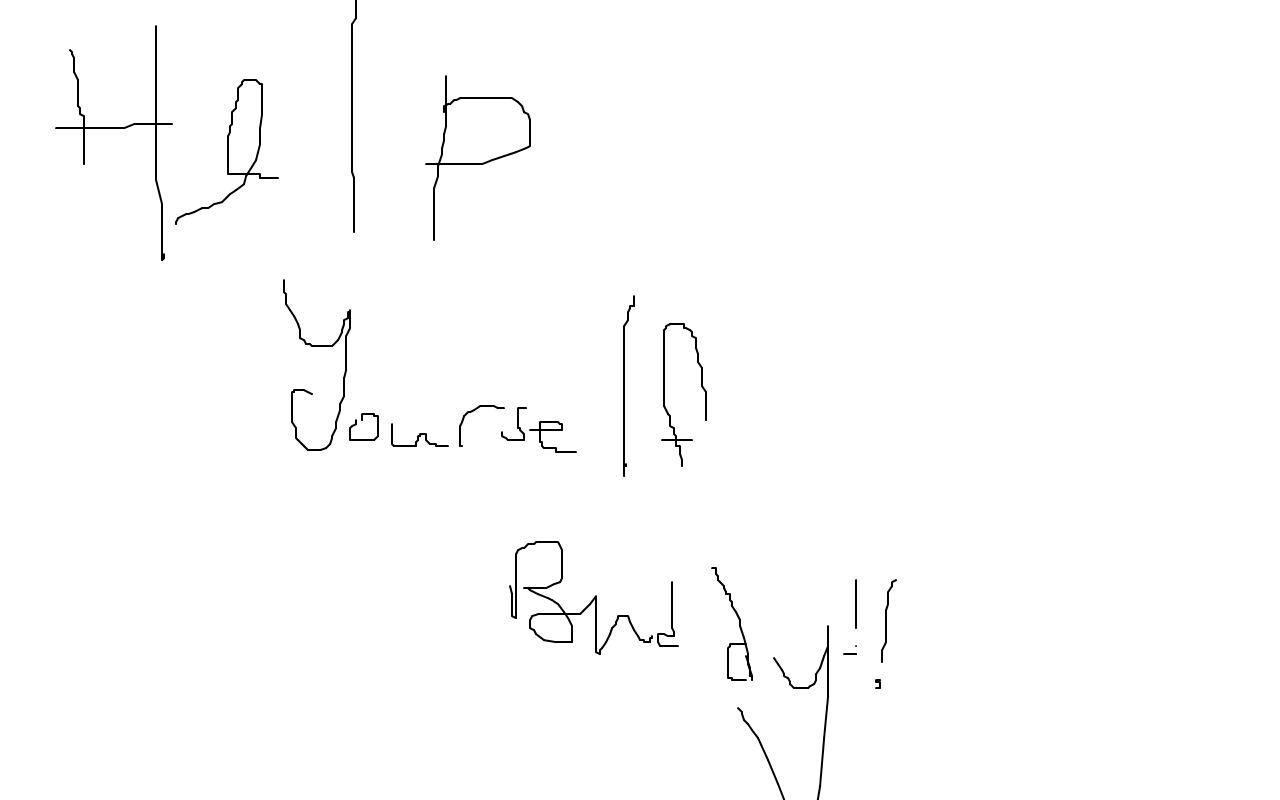 Help
Yourself
Buddy!!